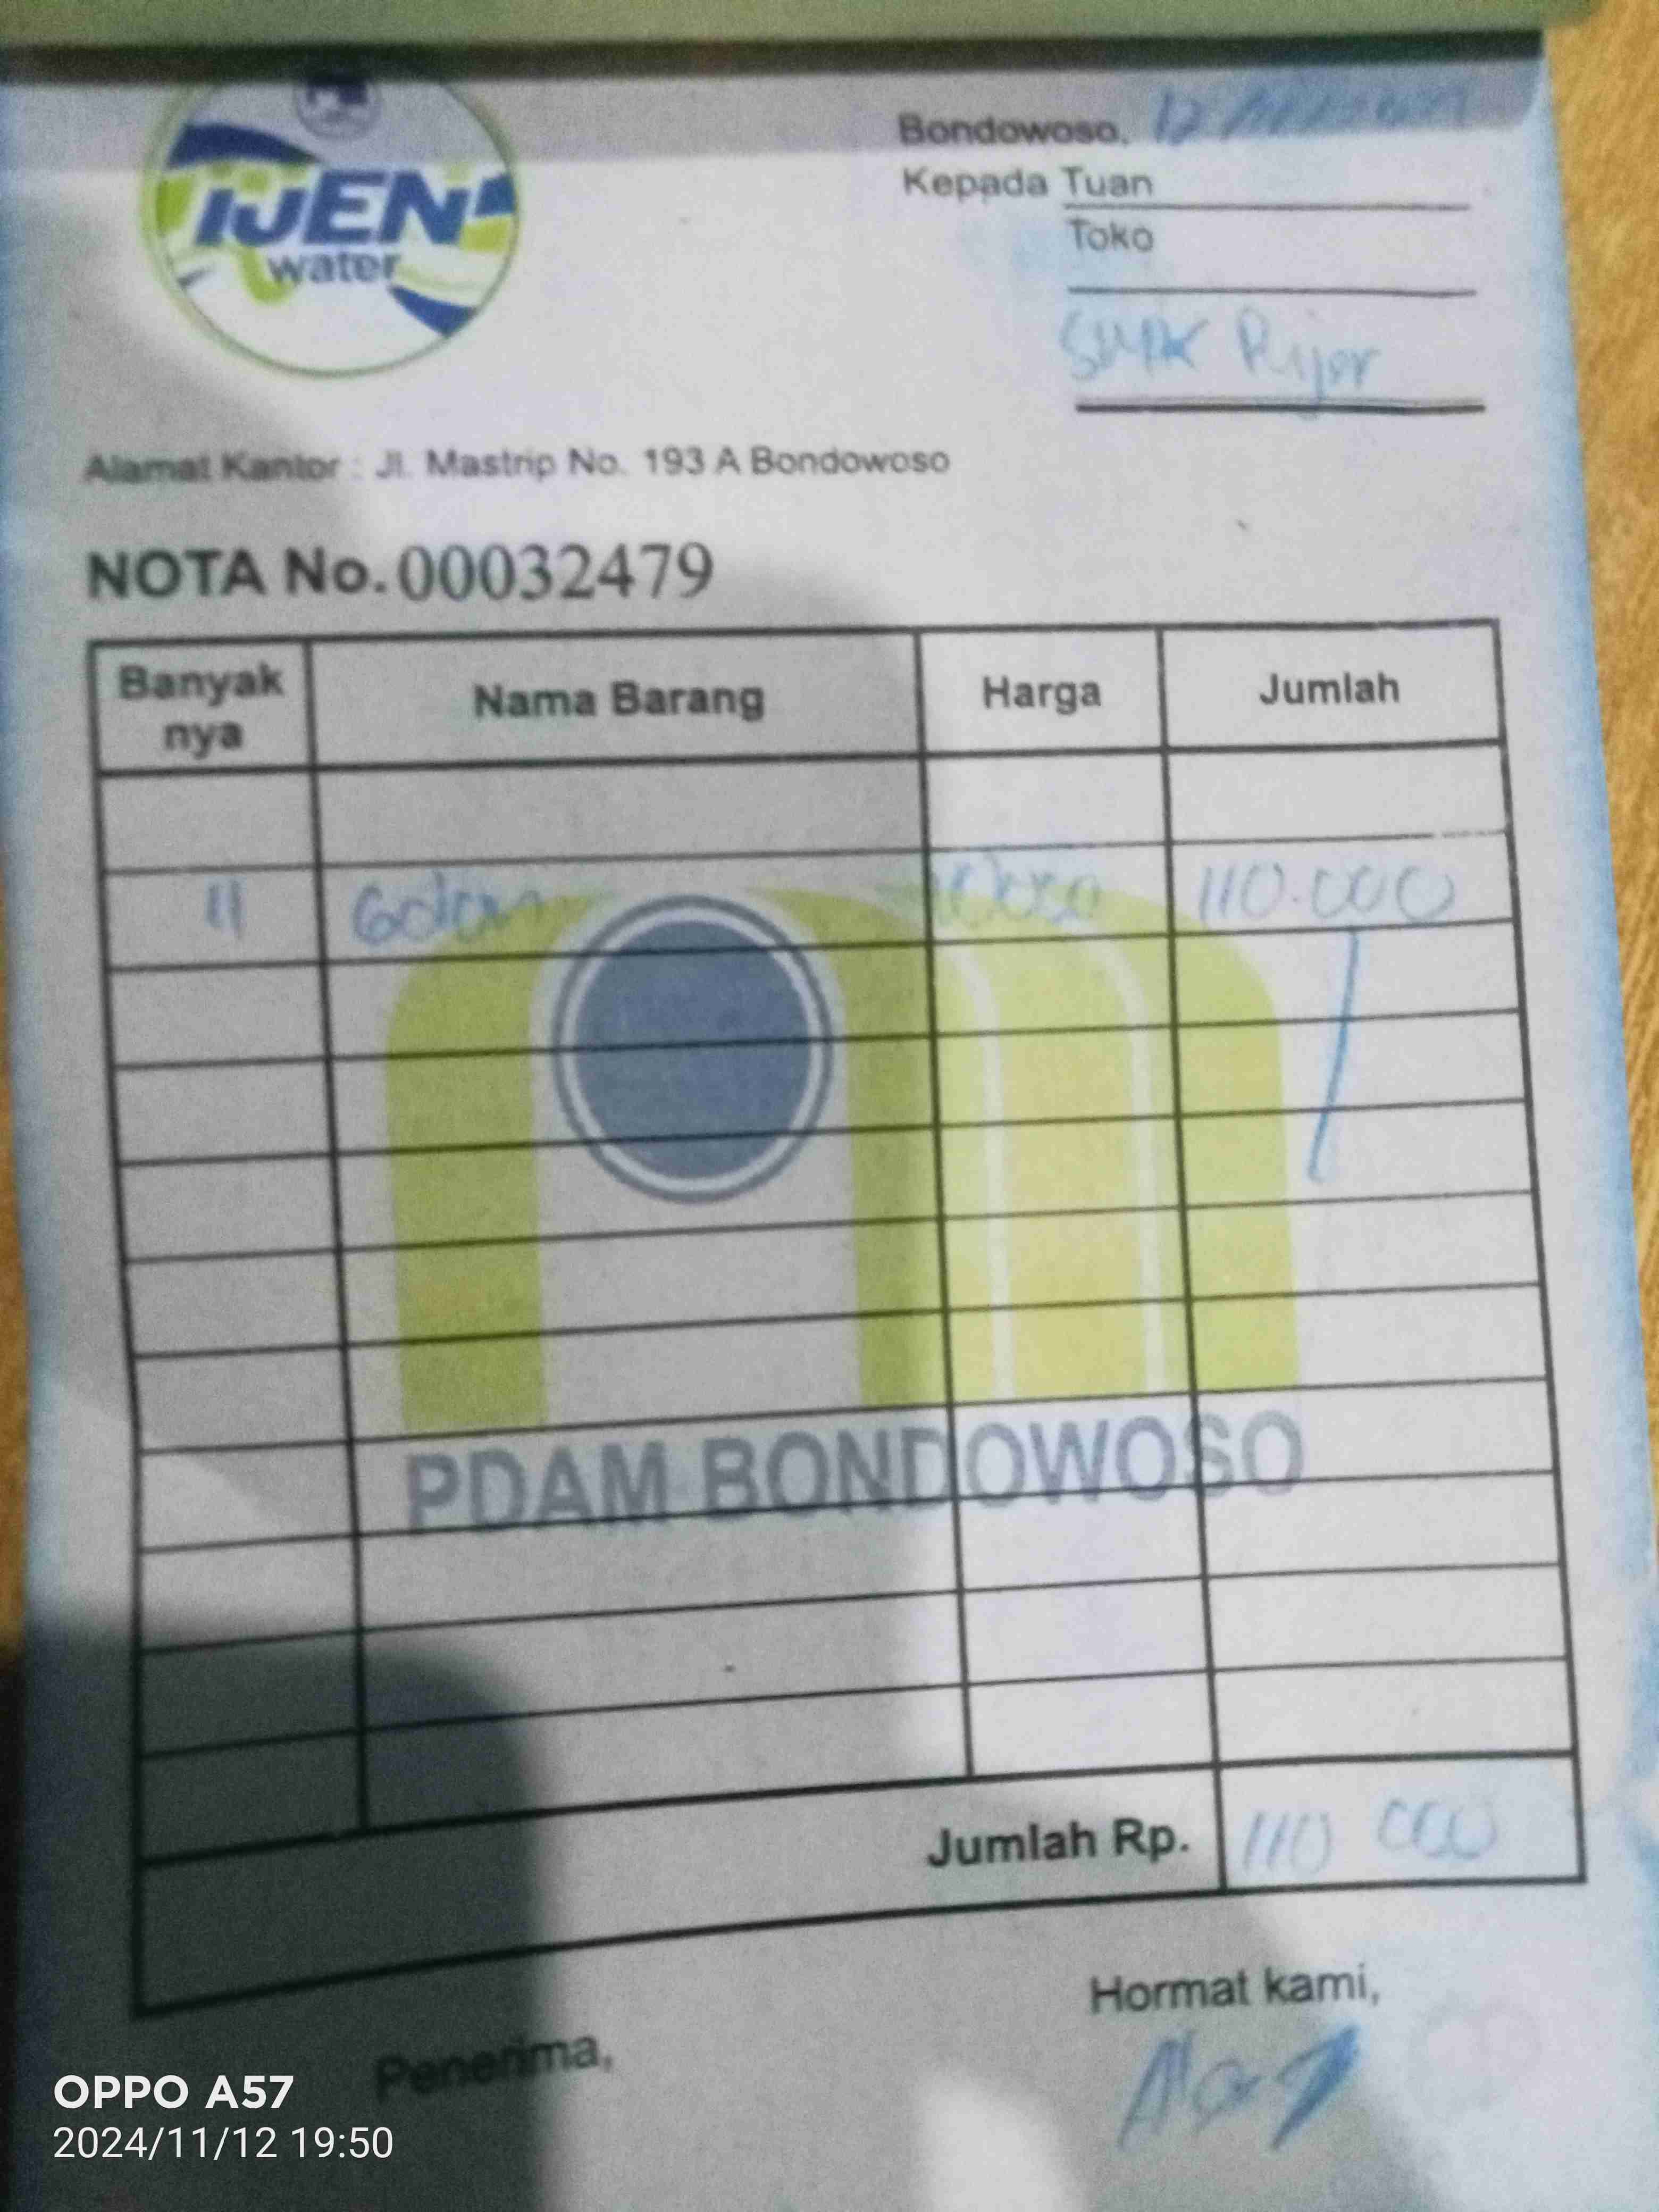 IJEN
water
Bondowoso, 12
Kepada Tuan
Toko
SMK
Alamat Kantor : Jl. Mastrip No. 193 A Bondowoso
NOTA No. 00032479
Banyak nya Nama Barang Harga Jumlah
11 Galon 110.000
PDAM BONDOWOSO
Jumlah Rp. 110 000
Hormat kami,
Penerima,
OPPO A57
2024/11/12 19:50